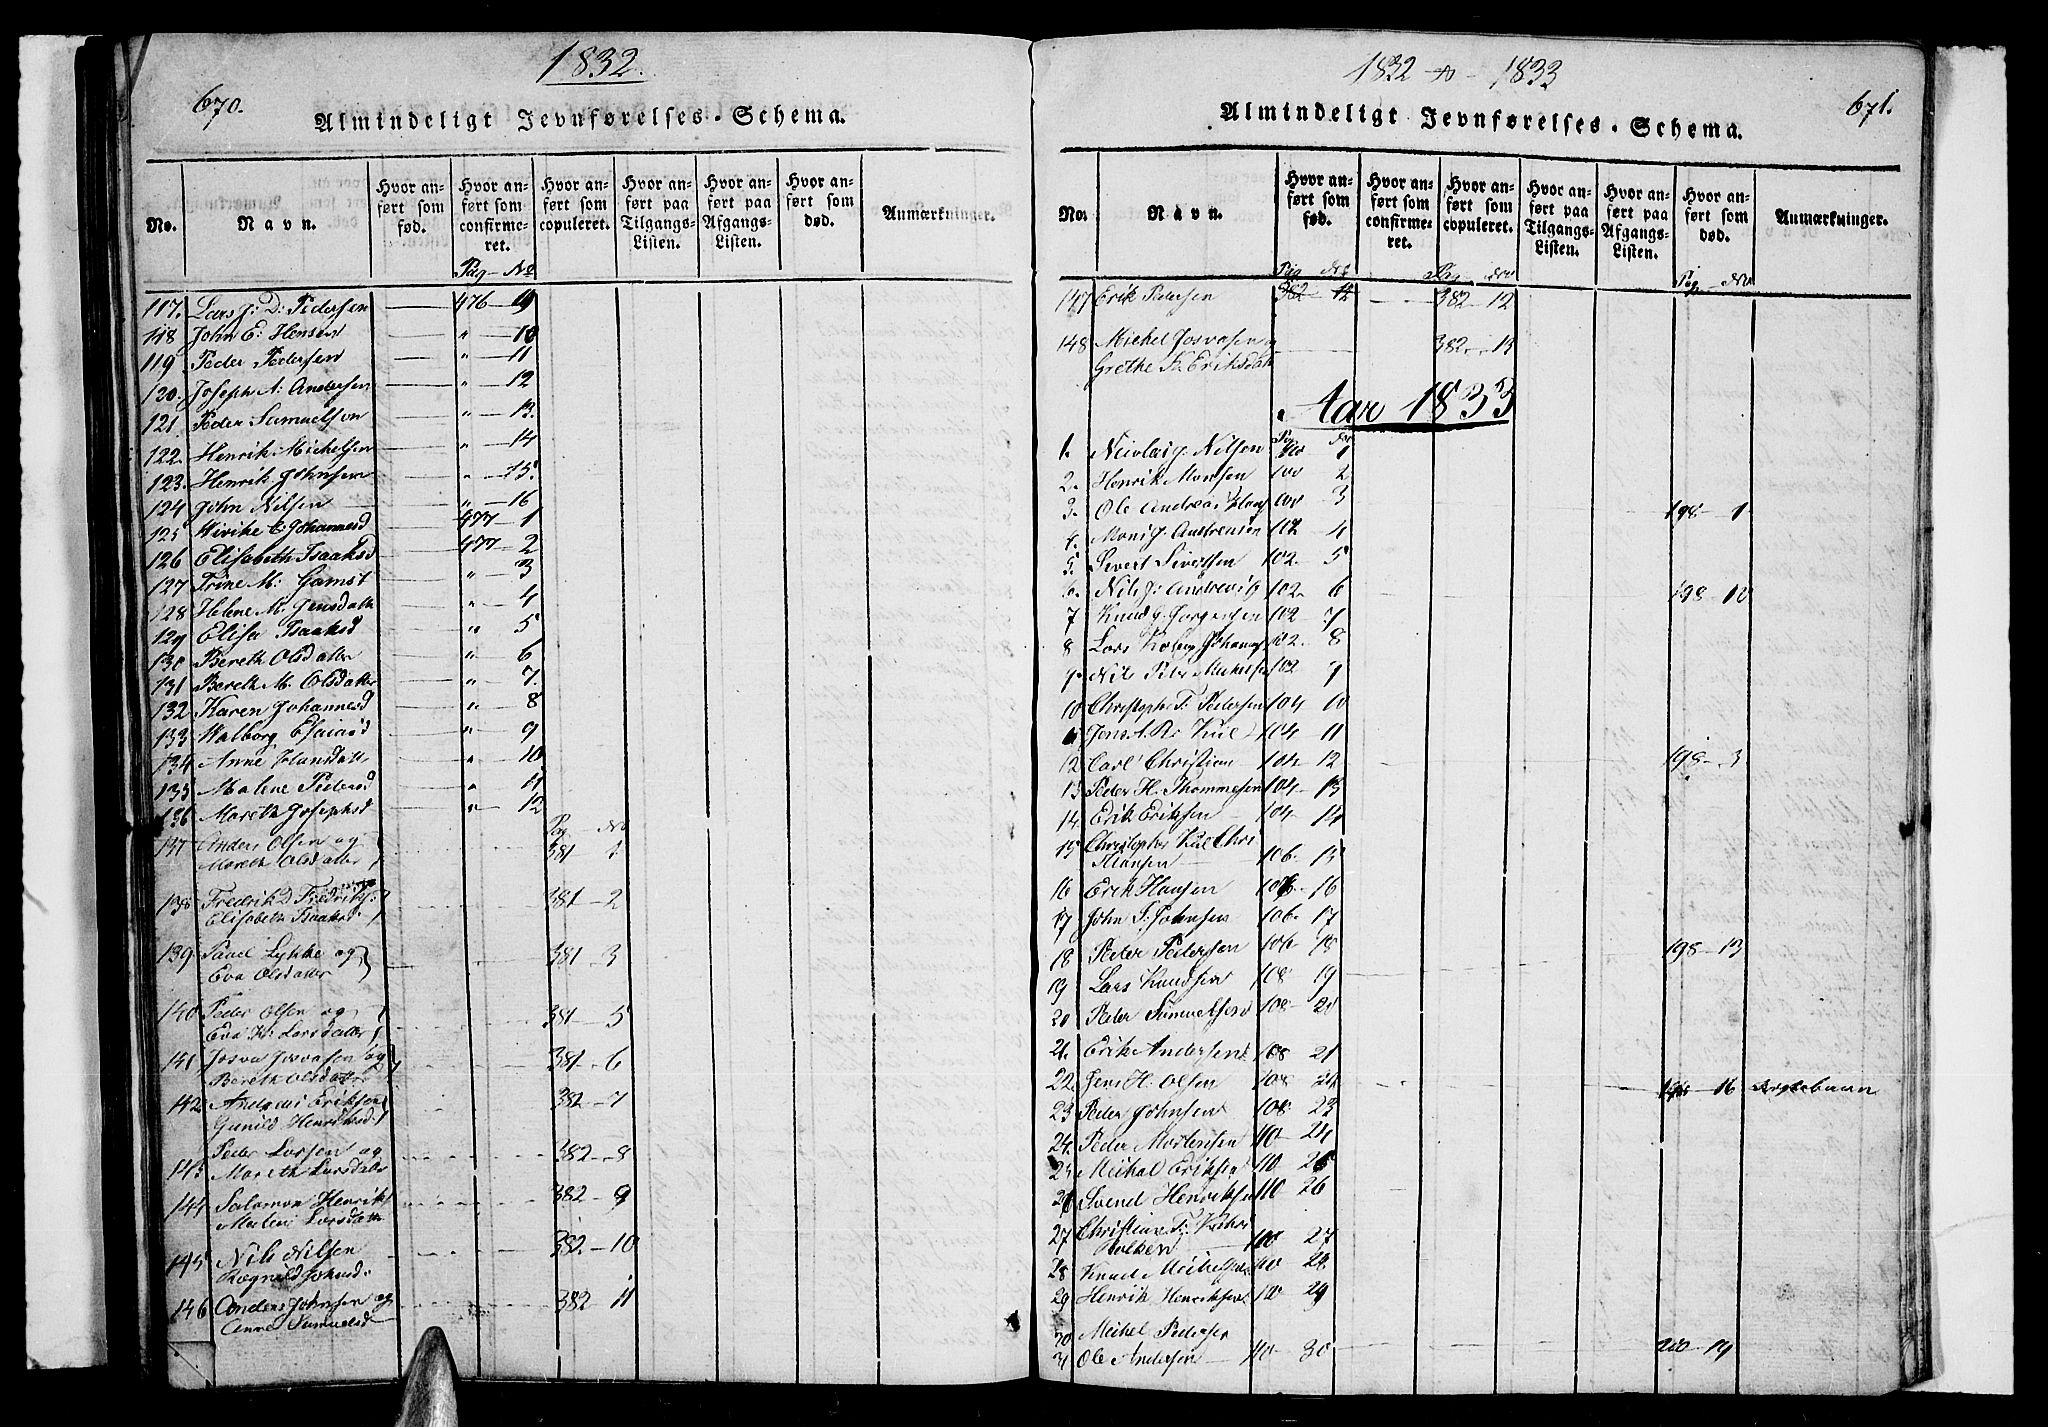 1832.
670.
Almindeligt Jevnførelses-Schema.
No.
Navn.
Hvor anført som fød.
Hvor anført som confirmeret.
Hvor anført som copuleret.
Hvor anført paa Tilgangs-Listen.
Hvor anført paa Afgangs-Listen.
Hvor anført som død.
Anmærkninger.
Pag — No
117. Lars J: D: Pedersen 476 — 9
118 John E: Hensen " — 10
119 Peder Pedersen " — 11
120. Joseph A: Andersen " — 12
121. Peder Samuelson " — 13.
122. Henrik Mickelsen " — 14
123. Henrik Johnsen " — 15.
124 John Nilsen " — 16
125 Wivike E Johannesd 477 — 1
126 Elisabeth Isaaksd 477 — 2
127 Trine M: Gamst " — 3
128 Helene M. Jensdattr " — 4
129 Elisa Isaaksd " — 5
130 Bereth Olsdatter " — 6
131 Bereth M. Olsdatter " — 7.
132 Karen Johannesd " — 8
133 Walborg Esaiasd " — 9
134 Anne Hansdattr " — 10
135 Malene Pedersd " — 11
136 Mareth Josephsd " — 12
Pag — Nro
137 Anders Olsen og
Mareth Olsdatter 381 — 1.
138 Fredrik D Fredriks:
Elisabeth Isaaksd. 381 — 2
139 Paul Lykke og
Eva Olsdatter 381 — 3
140 Peder Olsen og
Eva K: Larsdatter 381 — 5
141 Josva Josvasen og
Bereth Olsdatter 381 — 6
142 Andreas Eriksen
Gunild Henriksd 382 — 7
143. Peder Larsen og
Mareth Larsdatr 382 — 8
144 Salamon Henrik
Malene Larsdattr 382 — 9
145 Nils Nilsen
Ragnild Johnsd. 382 — 10
146 Anders Johnsen og
Anne Samuelsd 382 — 11
1832 — 1833
671.
Almindeligt Jevnførelses-Schema.
No.
Navn.
Hvor anført som fød.
Hvor anført som confirmeret.
Hvor anført som copuleret.
Hvor anført paa Tilgangs-Listen.
Hvor anført paa Afgangs-Listen.
Hvor anført som død.
Anmærkninger.
Pag Nro Pag Nro Pag — Nro
147 Erik Petersen 382 — 12 382 — 12
148 Michel Josvasen og
Grethe K. Eriksdatr 382 — 13
Aar 1833
Pag Nro
1. Nicolai J. Nilsen 100 1
2. Henrik Monsen 100 2
3. Ole Andreas 100 3 198 — 1
4. Mons J. Andreasen 102 — 4
5. Sivert Sivertsen 102. — 5
6. Nils J: Andreas 102. — 6 198 — 10
7 Knud J. Jørgensen 102 — 7
8 Lars Johan 102. 8
9. Nils Peter Mickelsen 102 — 9
10 Christoph T: Pedersen 104 10
11 Jens A. Kiil 104 — 11
12 Carl Christian 104 — 12 198 — 3
13 Peder H. Thommesen 104 — 13
14. Erik Eriksen 104 — 14
15 Christopher Kiil Chri
stiansen 106. — 15
16 Erik Hansen 106 — 16
17 John S: Johnsen 106. — 17
18 Peder Pedersen 106 — 18 198 — 13
19 Lars Knudsen 108 — 19
20 Peder Samuelsen 108 — 20
21. Erik Andersen 108 21
22. Jens H. Olsen 108 22 198 — 16
23 Peder Johnsen 108 23
24. Peder Mortensen 110 — 24
25 Michal Eriksen 110 25
26 Svend Henriksen 110 26
27 Christian F:
110 27
28 Knud Michelsen 110 28
29 Henrik Henriksen 110 29
30 Michel Pedersen
31 Ole Andersen 110 — 30 200 — 19